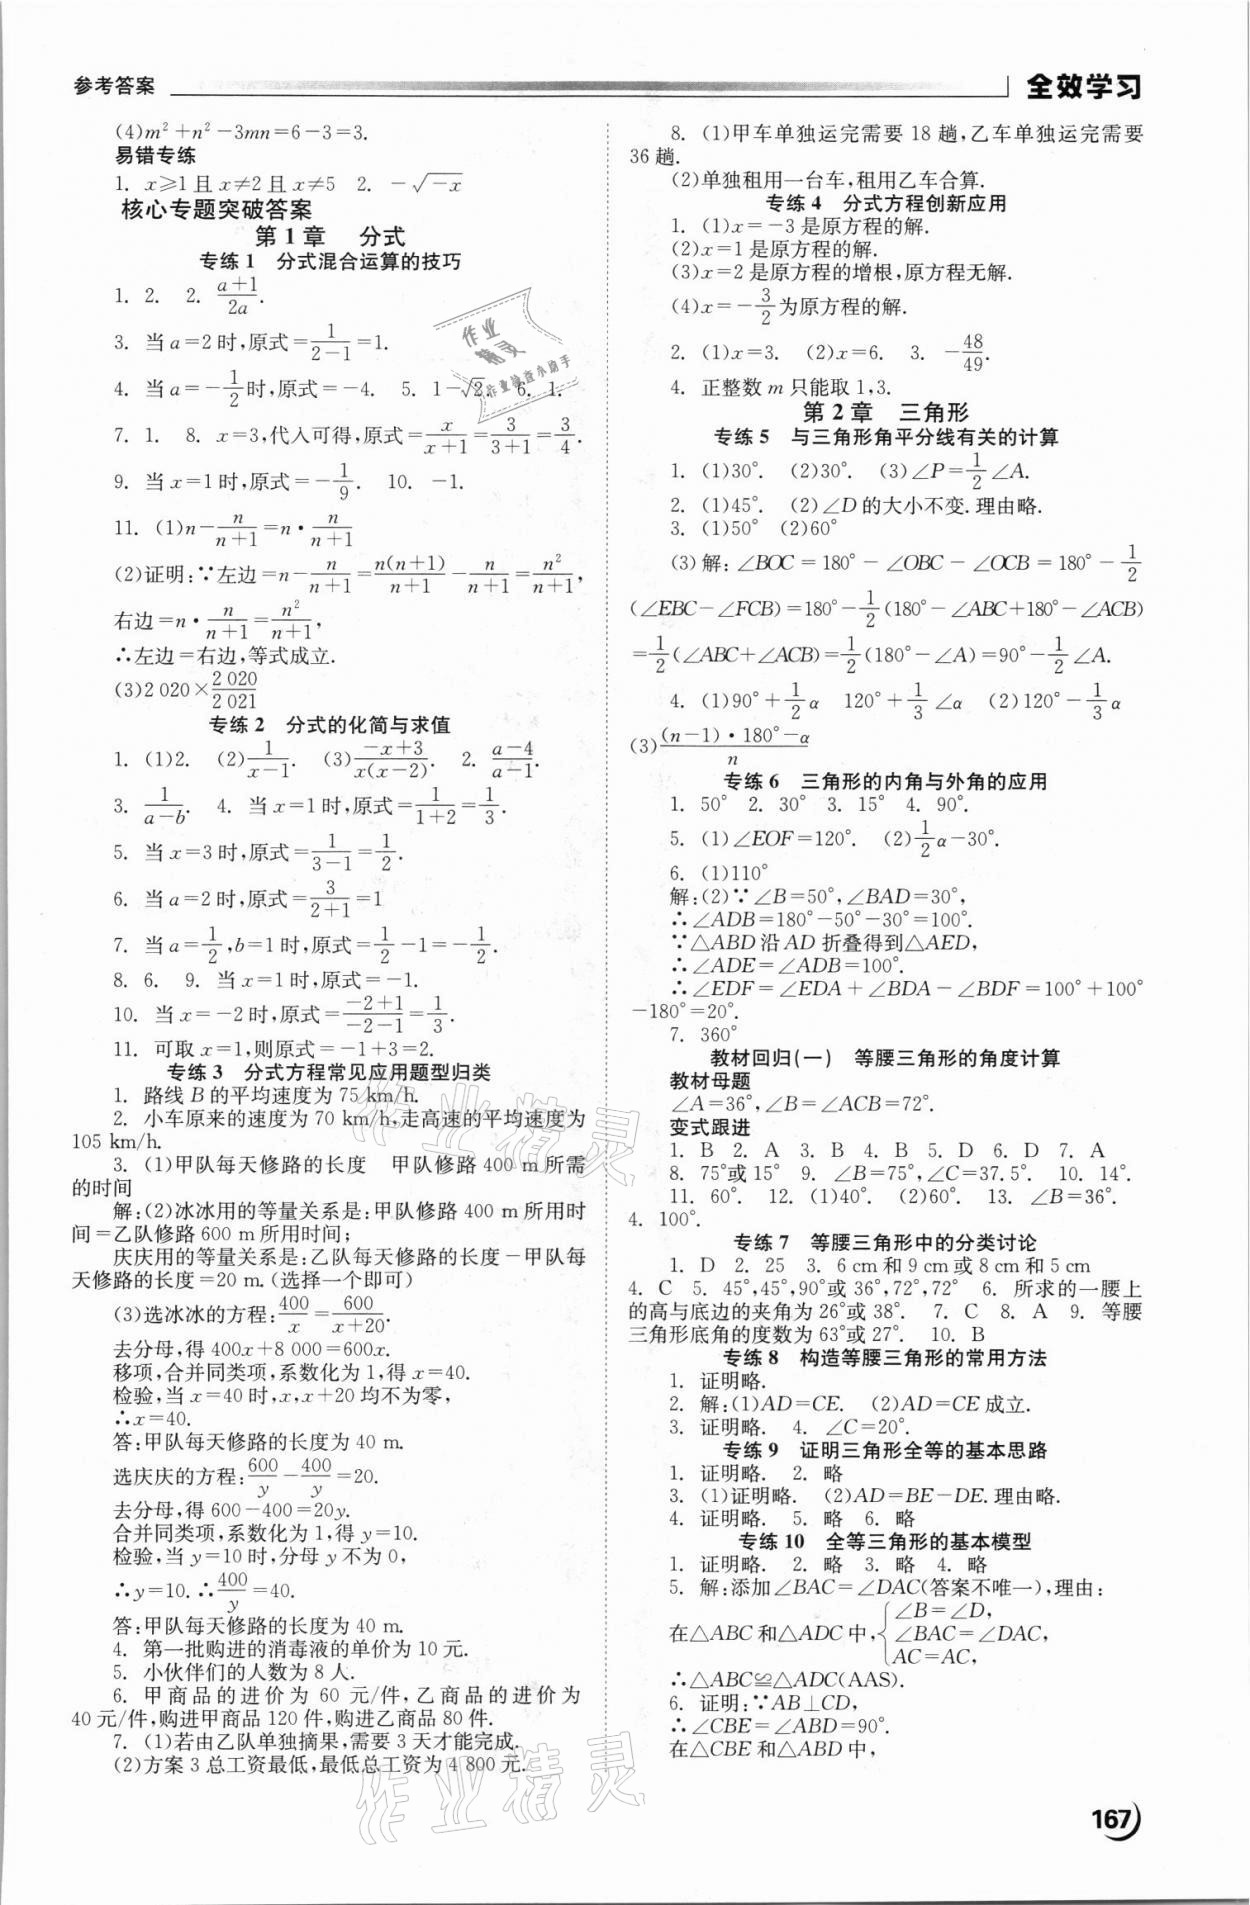 参考答案
全效学习
(4)m²+n²-3mn=6-3=3.
易错专练
1. x⩾1且x≠2且x≠5　2. -√(-x)
核心专题突破答案
第1章　分式
专练1　分式混合运算的技巧
1. 2.　2. (a+1)/(2a).
3. 当a=2时,原式=1/(2-1)=1.
4. 当a=-1/2时,原式=-4.　5. 1-√2.　6. 1.
7. 1.　8. x=3,代入可得,原式=x/(x+1)=3/(3+1)=3/4.
9. 当x=1时,原式=-1/9.　10. -1.
11. (1)n-n/(n+1)=n·n/(n+1)
(2)证明:∵左边=n-n/(n+1)=n(n+1)/(n+1)-n/(n+1)=n²/(n+1),
右边=n·n/(n+1)=n²/(n+1),
∴左边=右边,等式成立.
(3)2 020×2 020/2 021
专练2　分式的化简与求值
1. (1)2.　(2)1/(x-1).　(3)(-x+3)/(x(x-2)).　2. (a-4)/(a-1).
3. 1/(a-b).　4. 当x=1时,原式=1/(1+2)=1/3.
5. 当x=3时,原式=1/(3-1)=1/2.
6. 当a=2时,原式=3/(2+1)=1
7. 当a=1/2,b=1时,原式=1/2-1=-1/2.
8. 6.　9. 当x=1时,原式=-1.
10. 当x=-2时,原式=(-2+1)/(-2-1)=1/3.
11. 可取x=1,则原式=-1+3=2.
专练3　分式方程常见应用题型归类
1. 路线B的平均速度为75 km/h.
2. 小车原来的速度为70 km/h,走高速的平均速度为
105 km/h.
3. (1)甲队每天修路的长度　甲队修路400 m所需
的时间
解:(2)冰冰用的等量关系是:甲队修路400 m所用时
间=乙队修路600 m所用时间;
庆庆用的等量关系是:乙队每天修路的长度-甲队每
天修路的长度=20 m.(选择一个即可)
(3)选冰冰的方程:400/x=600/(x+20).
去分母,得400x+8 000=600x.
移项,合并同类项,系数化为1,得x=40.
检验,当x=40时,x,x+20均不为零,
∴x=40.
答:甲队每天修路的长度为40 m.
选庆庆的方程:600/y-400/y=20.
去分母,得600-400=20y.
合并同类项,系数化为1,得y=10.
检验,当y=10时,分母y不为0,
∴y=10.∴400/y=40.
答:甲队每天修路的长度为40 m.
4. 第一批购进的消毒液的单价为10元.
5. 小伙伴们的人数为8人.
6. 甲商品的进价为60元/件,乙商品的进价为
40元/件,购进甲商品120件,购进乙商品80件.
7. (1)若由乙队单独摘果,需要3天才能完成.
(2)方案3总工资最低,最低总工资为4 800元.
8. (1)甲车单独运完需要18趟,乙车单独运完需要
36趟.
(2)单独租用一台车,租用乙车合算.
专练4　分式方程创新应用
1. (1)x=-3是原方程的解.
(2)x=1是原方程的解.
(3)x=2是原方程的增根,原方程无解.
(4)x=-3/2为原方程的解.
2. (1)x=3.　(2)x=6.　3. -48/49.
4. 正整数m只能取1,3.
第2章　三角形
专练5　与三角形角平分线有关的计算
1. (1)30°.　(2)30°.　(3)∠P=1/2∠A.
2. (1)45°.　(2)∠D的大小不变.理由略.
3. (1)50°　(2)60°
(3)解:∠BOC=180°-∠OBC-∠OCB=180°-1/2
(∠EBC-∠FCB)=180°-1/2(180°-∠ABC+180°-∠ACB)
=1/2(∠ABC+∠ACB)=1/2(180°-∠A)=90°-1/2∠A.
4. (1)90°+1/2α　120°+1/3∠α　(2)120°-1/3α
(3)((n-1)·180°-α)/n
专练6　三角形的内角与外角的应用
1. 50°　2. 30°　3. 15°　4. 90°.
5. (1)∠EOF=120°.　(2)1/2α-30°.
6. (1)110°
解:(2)∵∠B=50°,∠BAD=30°,
∴∠ADB=180°-50°-30°=100°.
∵△ABD沿AD折叠得到△AED,
∴∠ADE=∠ADB=100°.
∴∠EDF=∠EDA+∠BDA-∠BDF=100°+100°
-180°=20°.
7. 360°
教材回归(一)　等腰三角形的角度计算
教材母题
∠A=36°,∠B=∠ACB=72°.
变式跟进
1. B　2. A　3. B　4. B　5. D　6. D　7. A
8. 75°或15°　9. ∠B=75°,∠C=37.5°.　10. 14°.
11. 60°.　12. (1)40°.　(2)60°.　13. ∠B=36°.
4. 100°.
专练7　等腰三角形中的分类讨论
1. D　2. 25　3. 6 cm和9 cm或8 cm和5 cm
4. C　5. 45°,45°,90°或36°,72°,72°　6. 所求的一腰上
的高与底边的夹角为26°或38°.　7. C　8. A　9. 等腰
三角形底角的度数为63°或27°.　10. B
专练8　构造等腰三角形的常用方法
1. 证明略.
2. 解:(1)AD=CE.　(2)AD=CE成立.
3. 证明略.　4. ∠C=20°.
专练9　证明三角形全等的基本思路
1. 证明略.　2. 略
3. (1)证明略.　(2)AD=BE-DE.理由略.
4. 证明略.　5. 略　6. 略
专练10　全等三角形的基本模型
1. 证明略.　2. 略　3. 略　4. 略
5. 解:添加∠BAC=∠DAC(答案不唯一),理由:
在△ABC和△ADC中,{∠B=∠D,
∠BAC=∠DAC,
AC=AC,
∴△ABC≌△ADC(AAS).
6. 证明:∵AB⊥CD,
∴∠CBE=∠ABD=90°.
在△CBE和△ABD中,
167
作业精灵
作业检查小助手
作业精灵
作业精灵